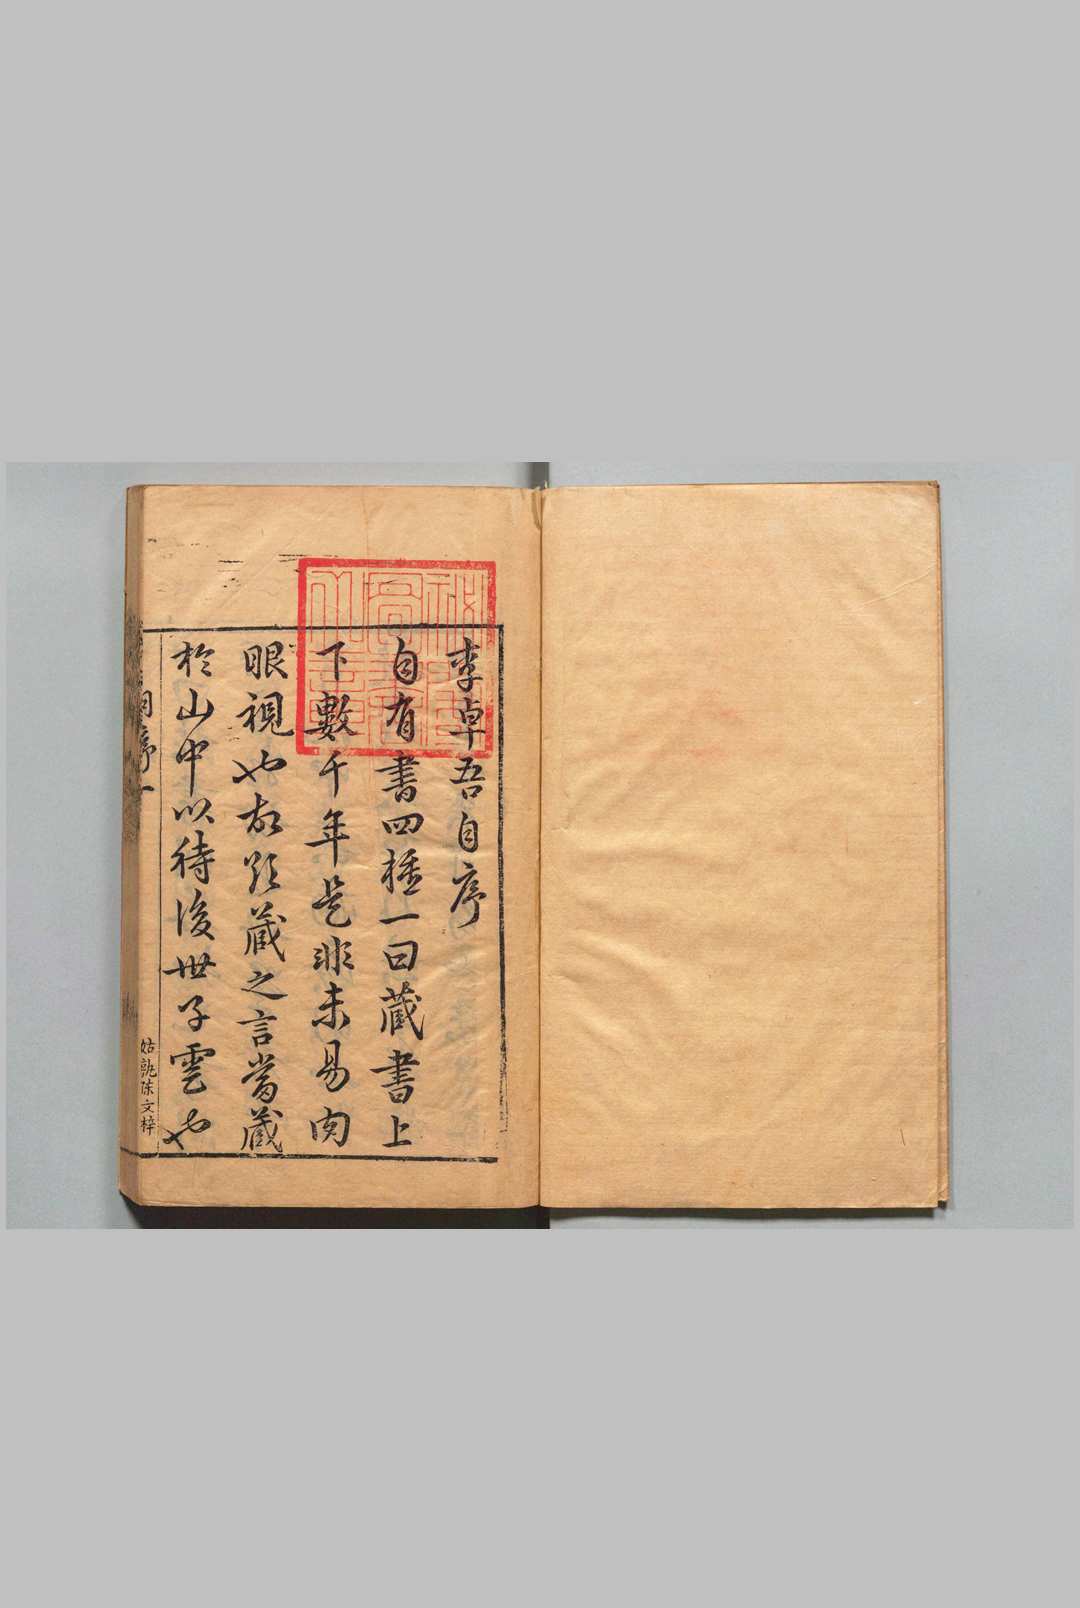 李卓吾自序
自有書四種一曰藏書上
下數千年是非未易肉
眼視也故欲藏之言當藏
於山中以待後世子雲也
序一
姑孰陈文梓